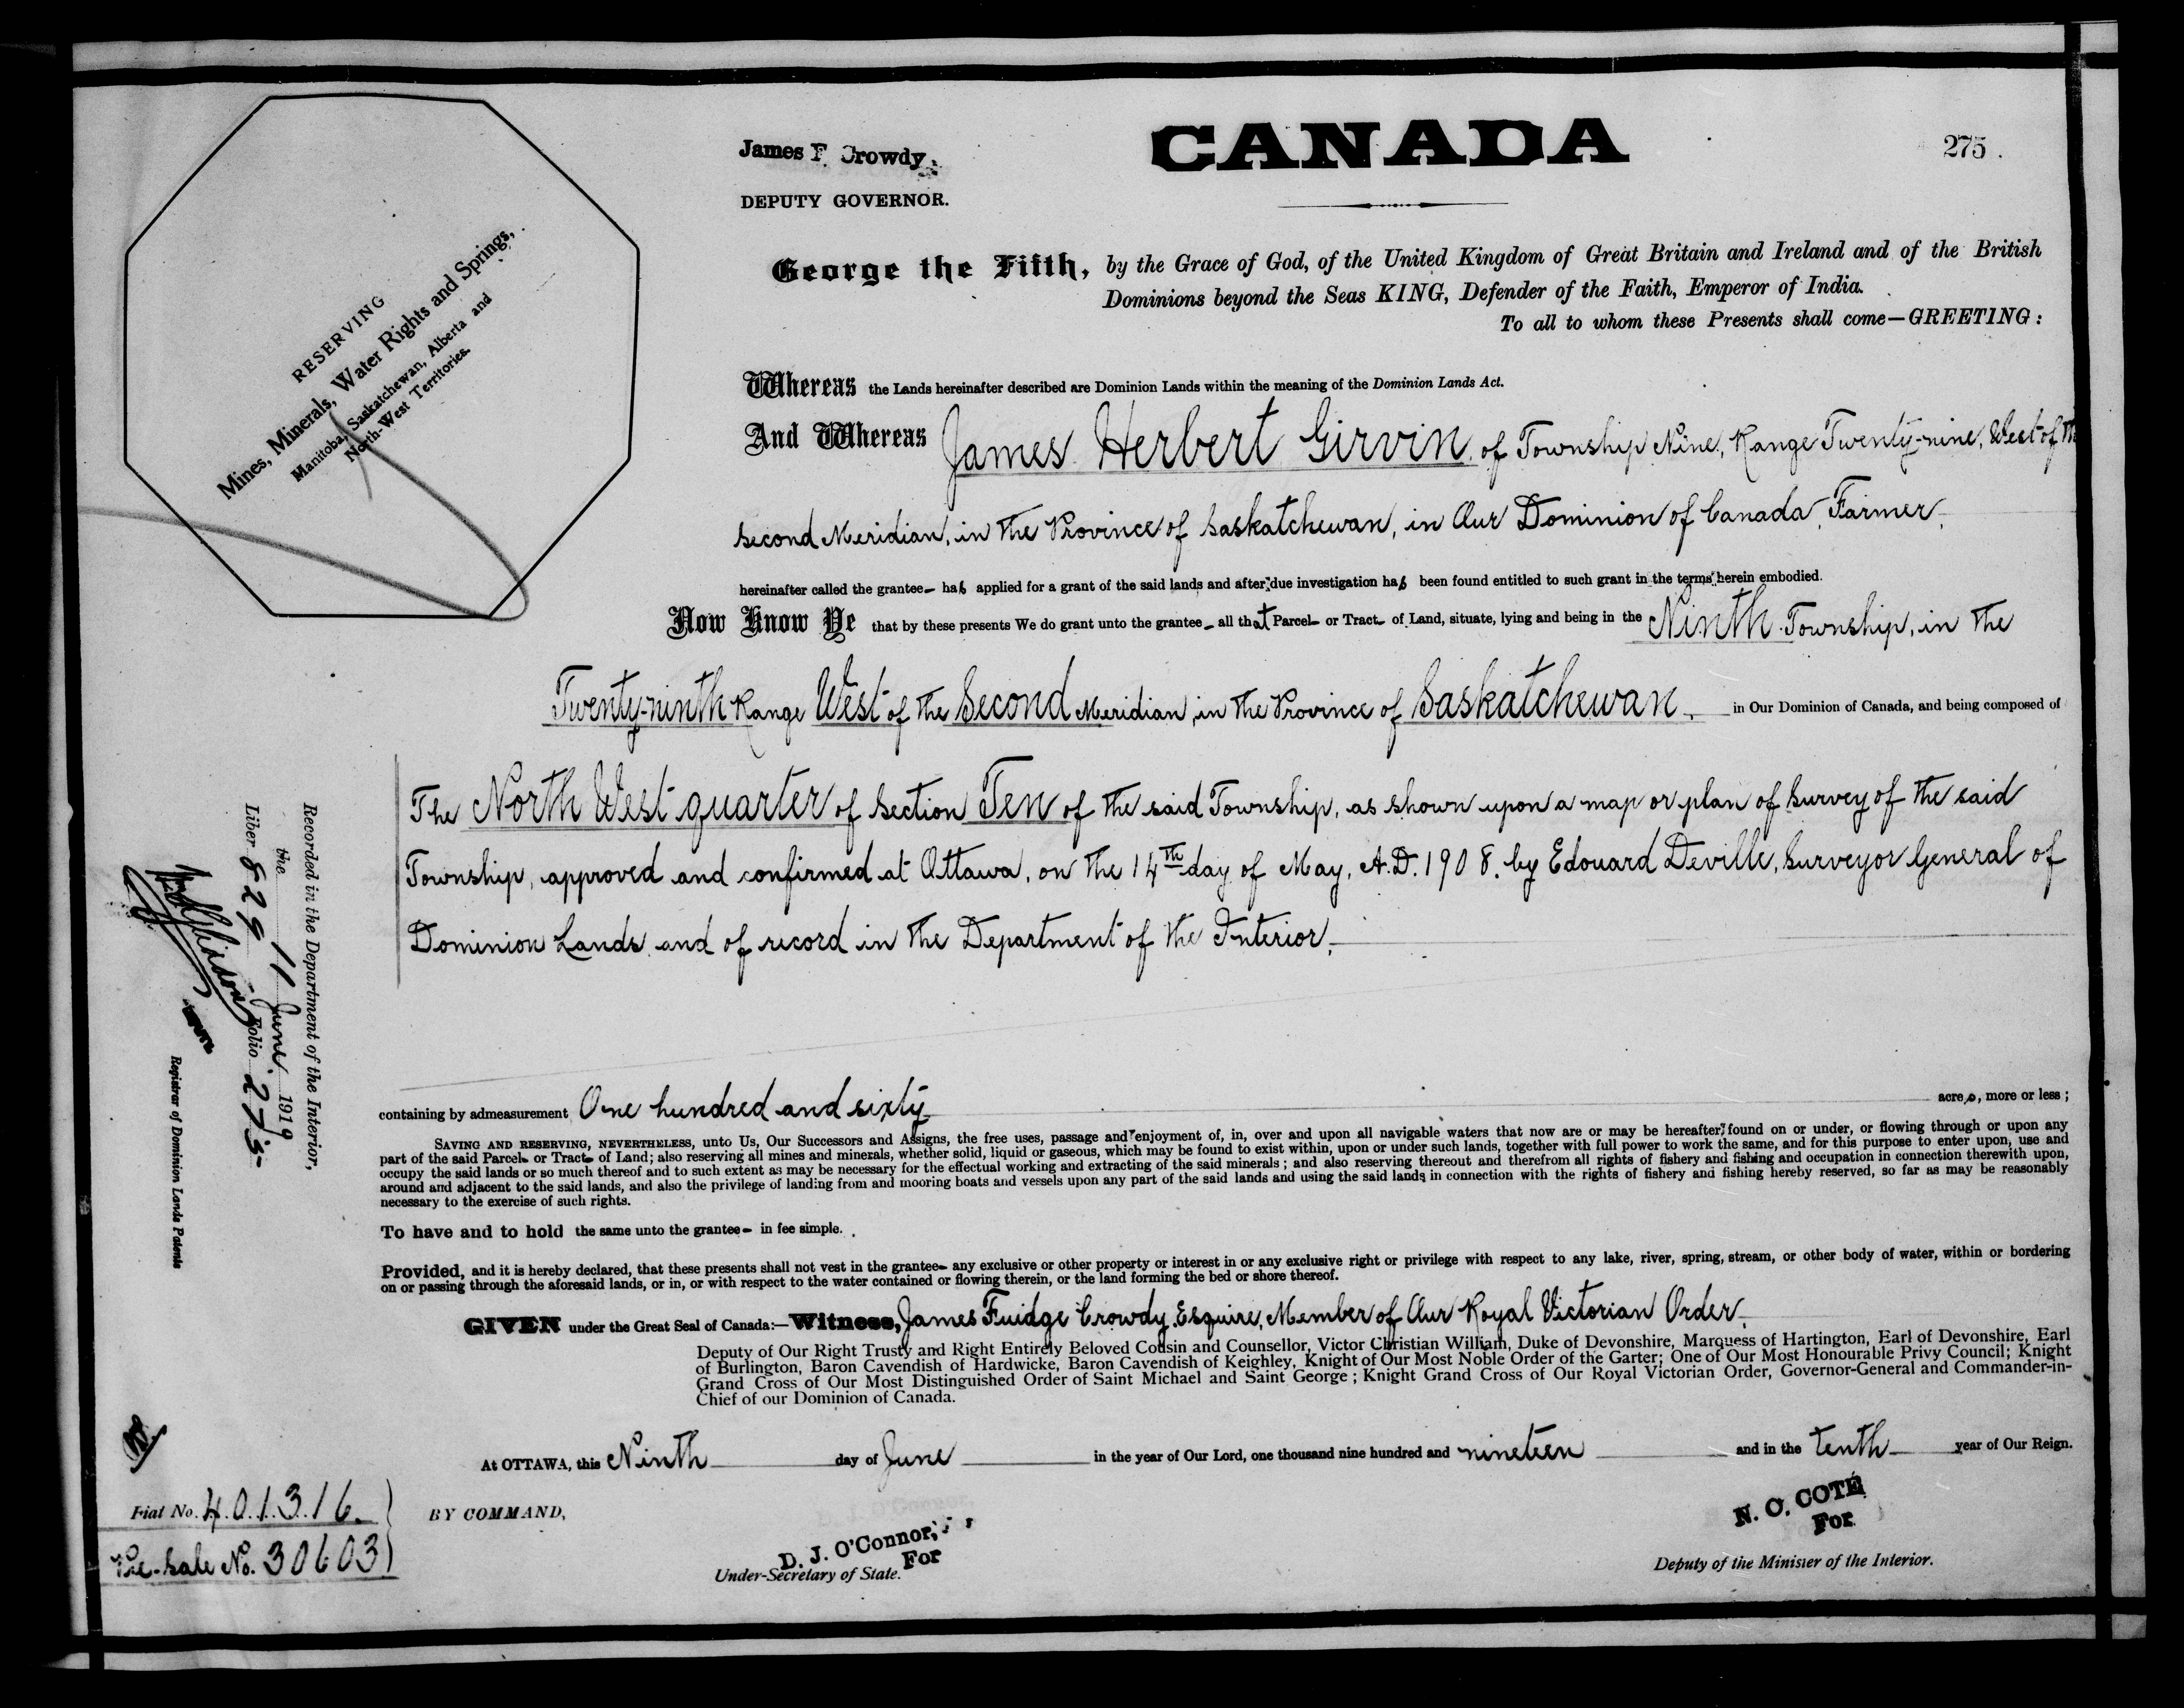 275
CANADA
James F. Crowdy,
DEPUTY GOVERNOR.
RESERVING
Mines, Minerals, Water Rights and Springs,
Manitoba, Saskatchewan, Alberta and
North-West Territories.
George the Fifth, by the Grace of God, of the United Kingdom of Great Britain and Ireland and of the British
Dominions beyond the Seas KING, Defender of the Faith, Emperor of India.
To all to whom these Presents shall come—GREETING:
Whereas the Lands hereinafter described are Dominion Lands within the meaning of the Dominion Lands Act.
And Whereas James Herbert Girvin, of Township Nine, Range Twenty-nine, West of the
Second Meridian, in the Province of Saskatchewan, in Our Dominion of Canada, Farmer,
hereinafter called the grantee has applied for a grant of the said lands and after due investigation has been found entitled to such grant in the terms herein embodied.
Now Know Ye that by these presents We do grant unto the grantee all that Parcel or Tract of Land, situate, lying and being in the Ninth Township, in the
Twenty-ninth Range West of the Second Meridian, in the Province of Saskatchewan, in Our Dominion of Canada, and being composed of
The North West quarter of Section Ten of the said Township, as shown upon a map or plan of survey of the said
Township, approved and confirmed at Ottawa, on the 14th day of May, A.D. 1908, by Edouard Deville, Surveyor General of
Dominion Lands and of record in the Department of the Interior,
containing by admeasurement One hundred and sixty acres, more or less;
SAVING AND RESERVING, NEVERTHELESS, unto Us, Our Successors and Assigns, the free uses, passage and enjoyment of, in, over and upon all navigable waters that now are or may be hereafter found on or under, or flowing through or upon any
part of the said Parcel or Tract of Land; also reserving all mines and minerals, whether solid, liquid or gaseous, which may be found to exist within, upon or under such lands, together with full power to work the same, and for this purpose to enter upon, use and
occupy the said lands or so much thereof and to such extent as may be necessary for the effectual working and extracting of the said minerals; and also reserving thereout and therefrom all rights of fishery and fishing and occupation in connection therewith upon,
around and adjacent to the said lands, and also the privilege of landing from and mooring boats and vessels upon any part of the said lands and using the said lands in connection with the rights of fishery and fishing hereby reserved, so far as may be reasonably
necessary to the exercise of such rights.
To have and to hold the same unto the grantee in fee simple.
Provided, and it is hereby declared, that these presents shall not vest in the grantee any exclusive or other property or interest in or any exclusive right or privilege with respect to any lake, river, spring, stream, or other body of water, within or bordering
on or passing through the aforesaid lands, or in, or with respect to the water contained or flowing therein, or the land forming the bed or shore thereof.
GIVEN under the Great Seal of Canada:—Witness, James Fuidge Crowdy, Esquire, Member of Our Royal Victorian Order,
Deputy of Our Right Trusty and Right Entirely Beloved Cousin and Counsellor, Victor Christian William, Duke of Devonshire, Marquess of Hartington, Earl of Devonshire, Earl
of Burlington, Baron Cavendish of Hardwicke, Baron Cavendish of Keighley, Knight of Our Most Noble Order of the Garter; One of Our Most Honourable Privy Council; Knight
Grand Cross of Our Most Distinguished Order of Saint Michael and Saint George; Knight Grand Cross of Our Royal Victorian Order, Governor-General and Commander-in-
Chief of our Dominion of Canada.
At OTTAWA, this Ninth day of June in the year of Our Lord, one thousand nine hundred and nineteen and in the tenth year of Our Reign.
BY COMMAND,
D. J. O'Connor,
For
Under-Secretary of State.
N. O. COTÉ
For
Deputy of the Minister of the Interior.
Recorded in the Department of the Interior,
the 11 June 1919
Liber 829 Folio 275
Registrar of Dominion Lands Patents
Fiat No. 401316.
Pre-Sale No. 30603